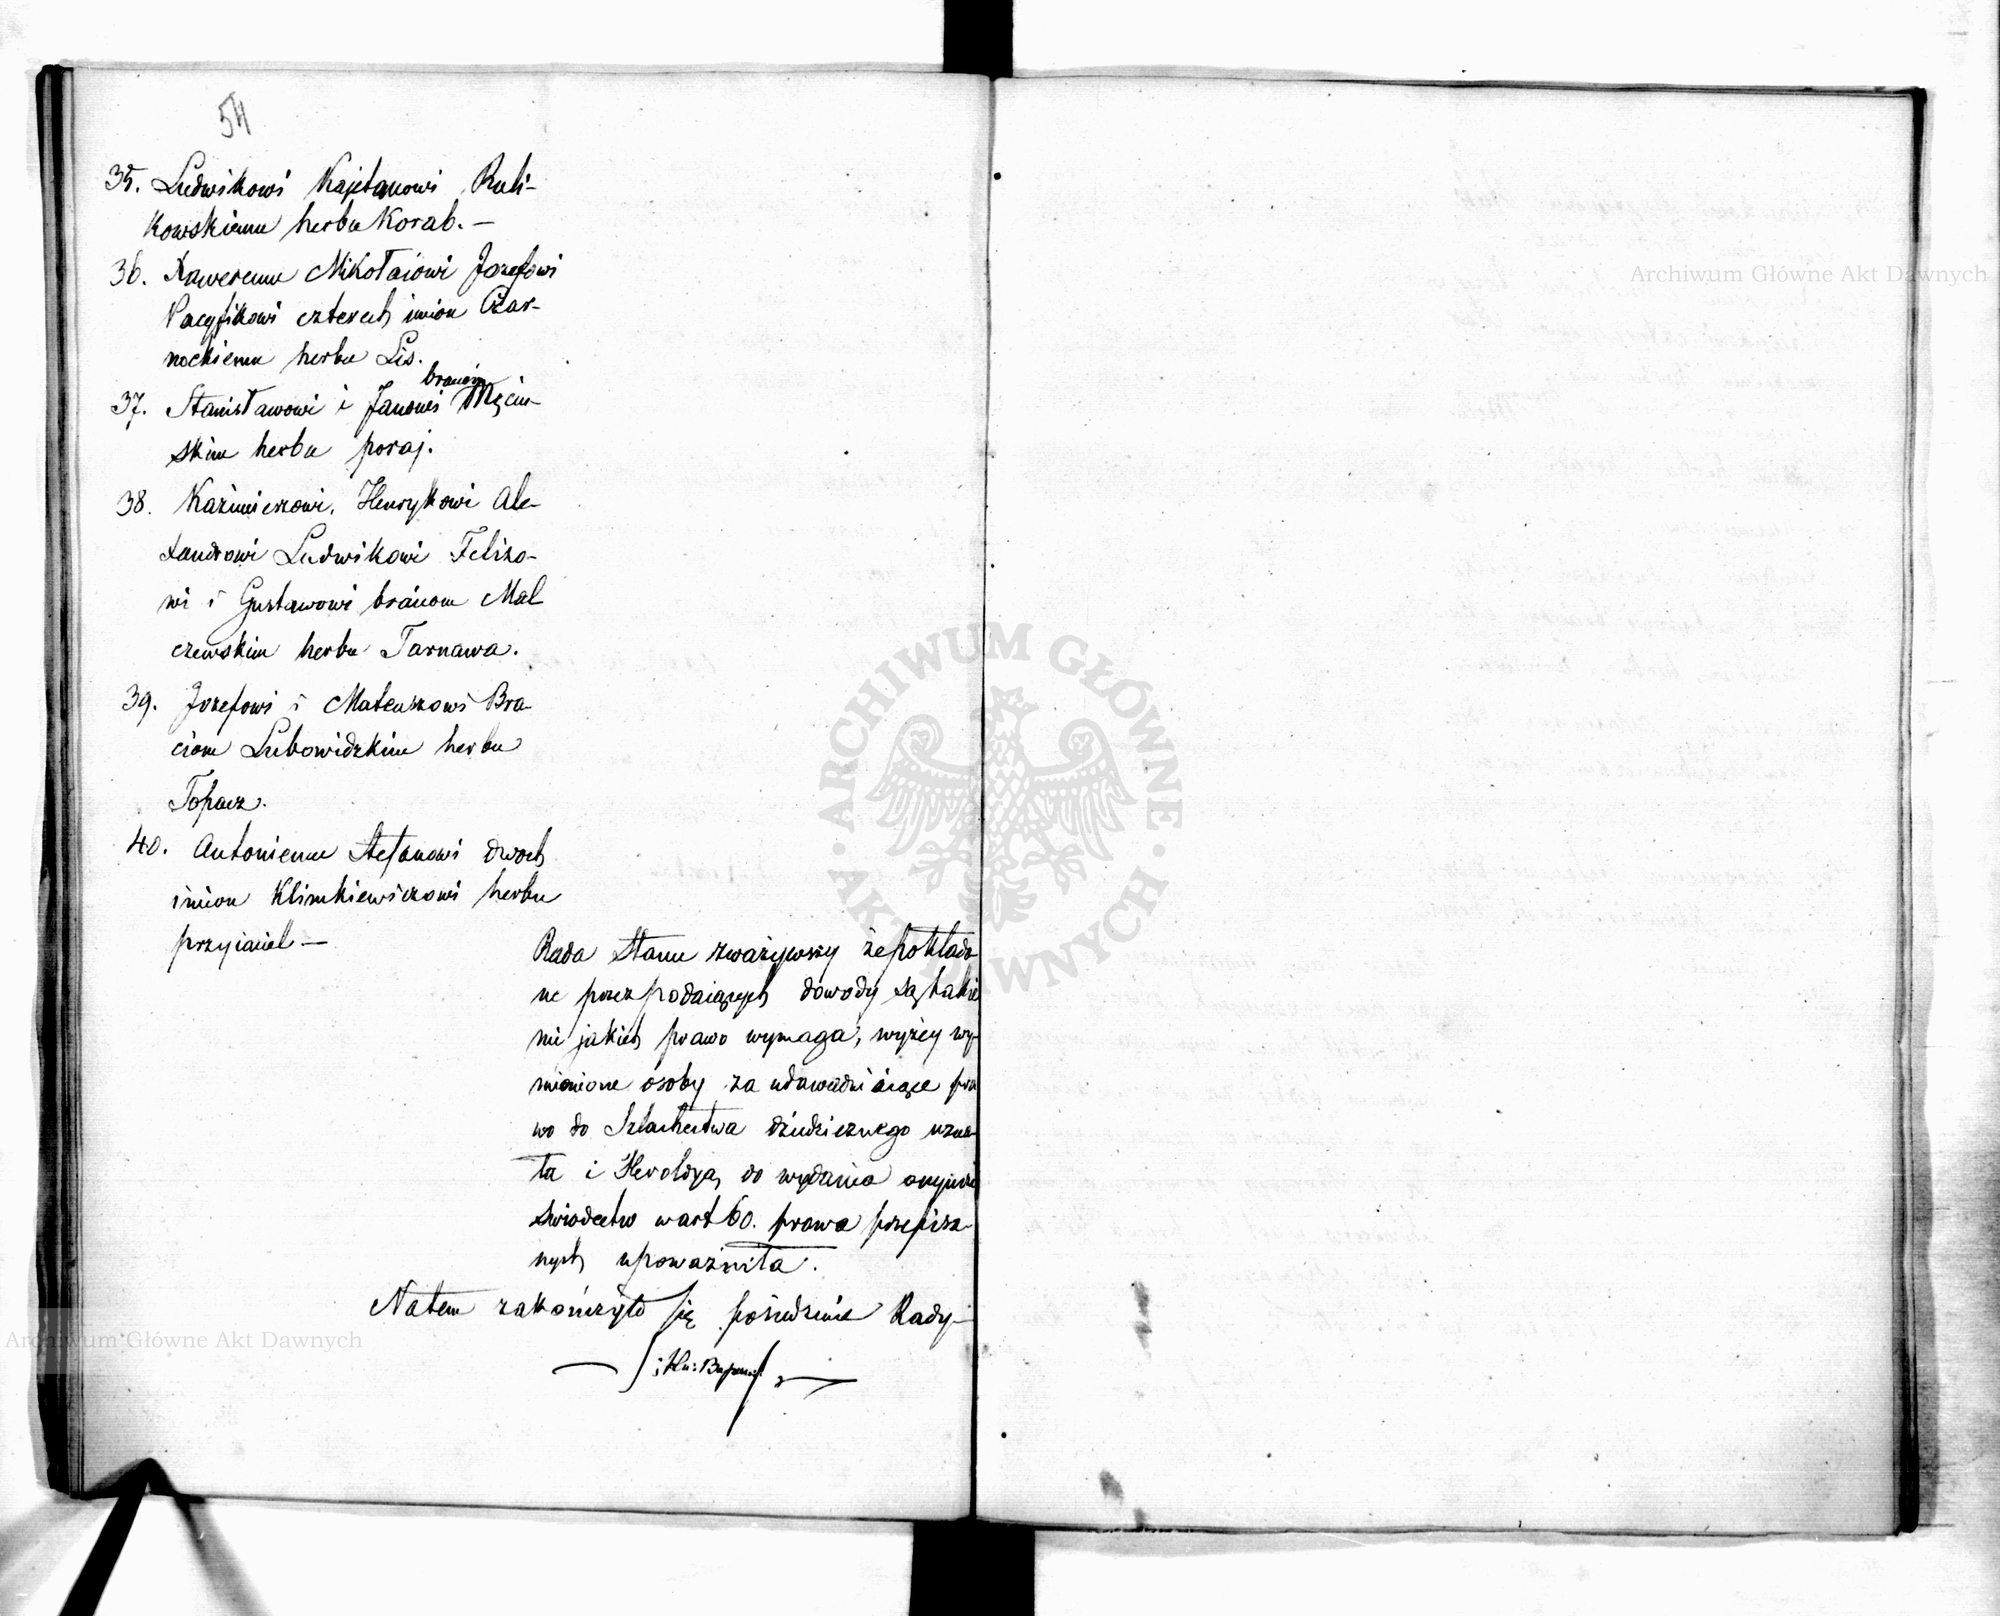 54
35. Ludwikowi Kajetanowi Ruli-
kowskiemu herbu Korab. —
36. Xaweremu Mikołaiowi Jozefowi
Pacyfikowi czterech imion Czar-
nockiemu herbu Lis.
braciom
37. Stanisławowi i Janowi Męcin-
skim herbu poraj.
38. Kaźmierzowi, Henrykowi Ale-
xandrowi Ludwikowi Felixo-
wi i Gustawowi braciom Mal
czewskim herbu Tarnawa.
39. Jozefowi i Mateuszowi Bra-
ciom Lubowidzkim herbu
Topacz.
40. Antoniemu Stefanowi dwoch
imion Klimkiewiczowi herbu
przyiaciel —
Rada Stanu zważywszy że pokłada-
ne przez podaiących dowody są takie
mi jakich prawo wymaga, wyżey wy-
mienione osoby za udawadniaiące pra
wo do Szlachectwa dziedzicznego uzna-
ła i Heroldyą do wydania onymże
swiadectw w art 60. prawa przepisa-
nych upoważniła.
Na tem zakończyło się posiedzenie Rady —
Archiwum Główne Akt Dawnych
Archiwum Główne Akt Dawnych
ARCHIWUM GŁÓWNE · AKT DAWNYCH ·